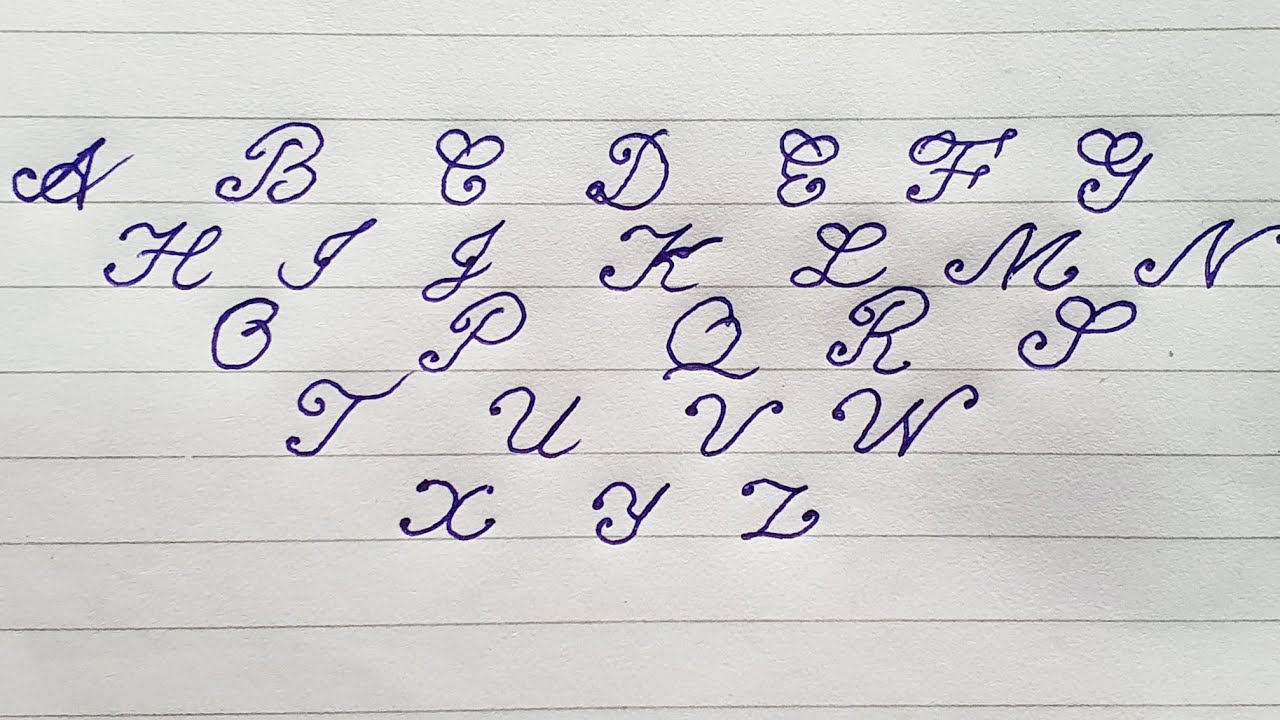 A B C D E F G
H I J K L M N
O P Q R S
T U V W
X Y Z